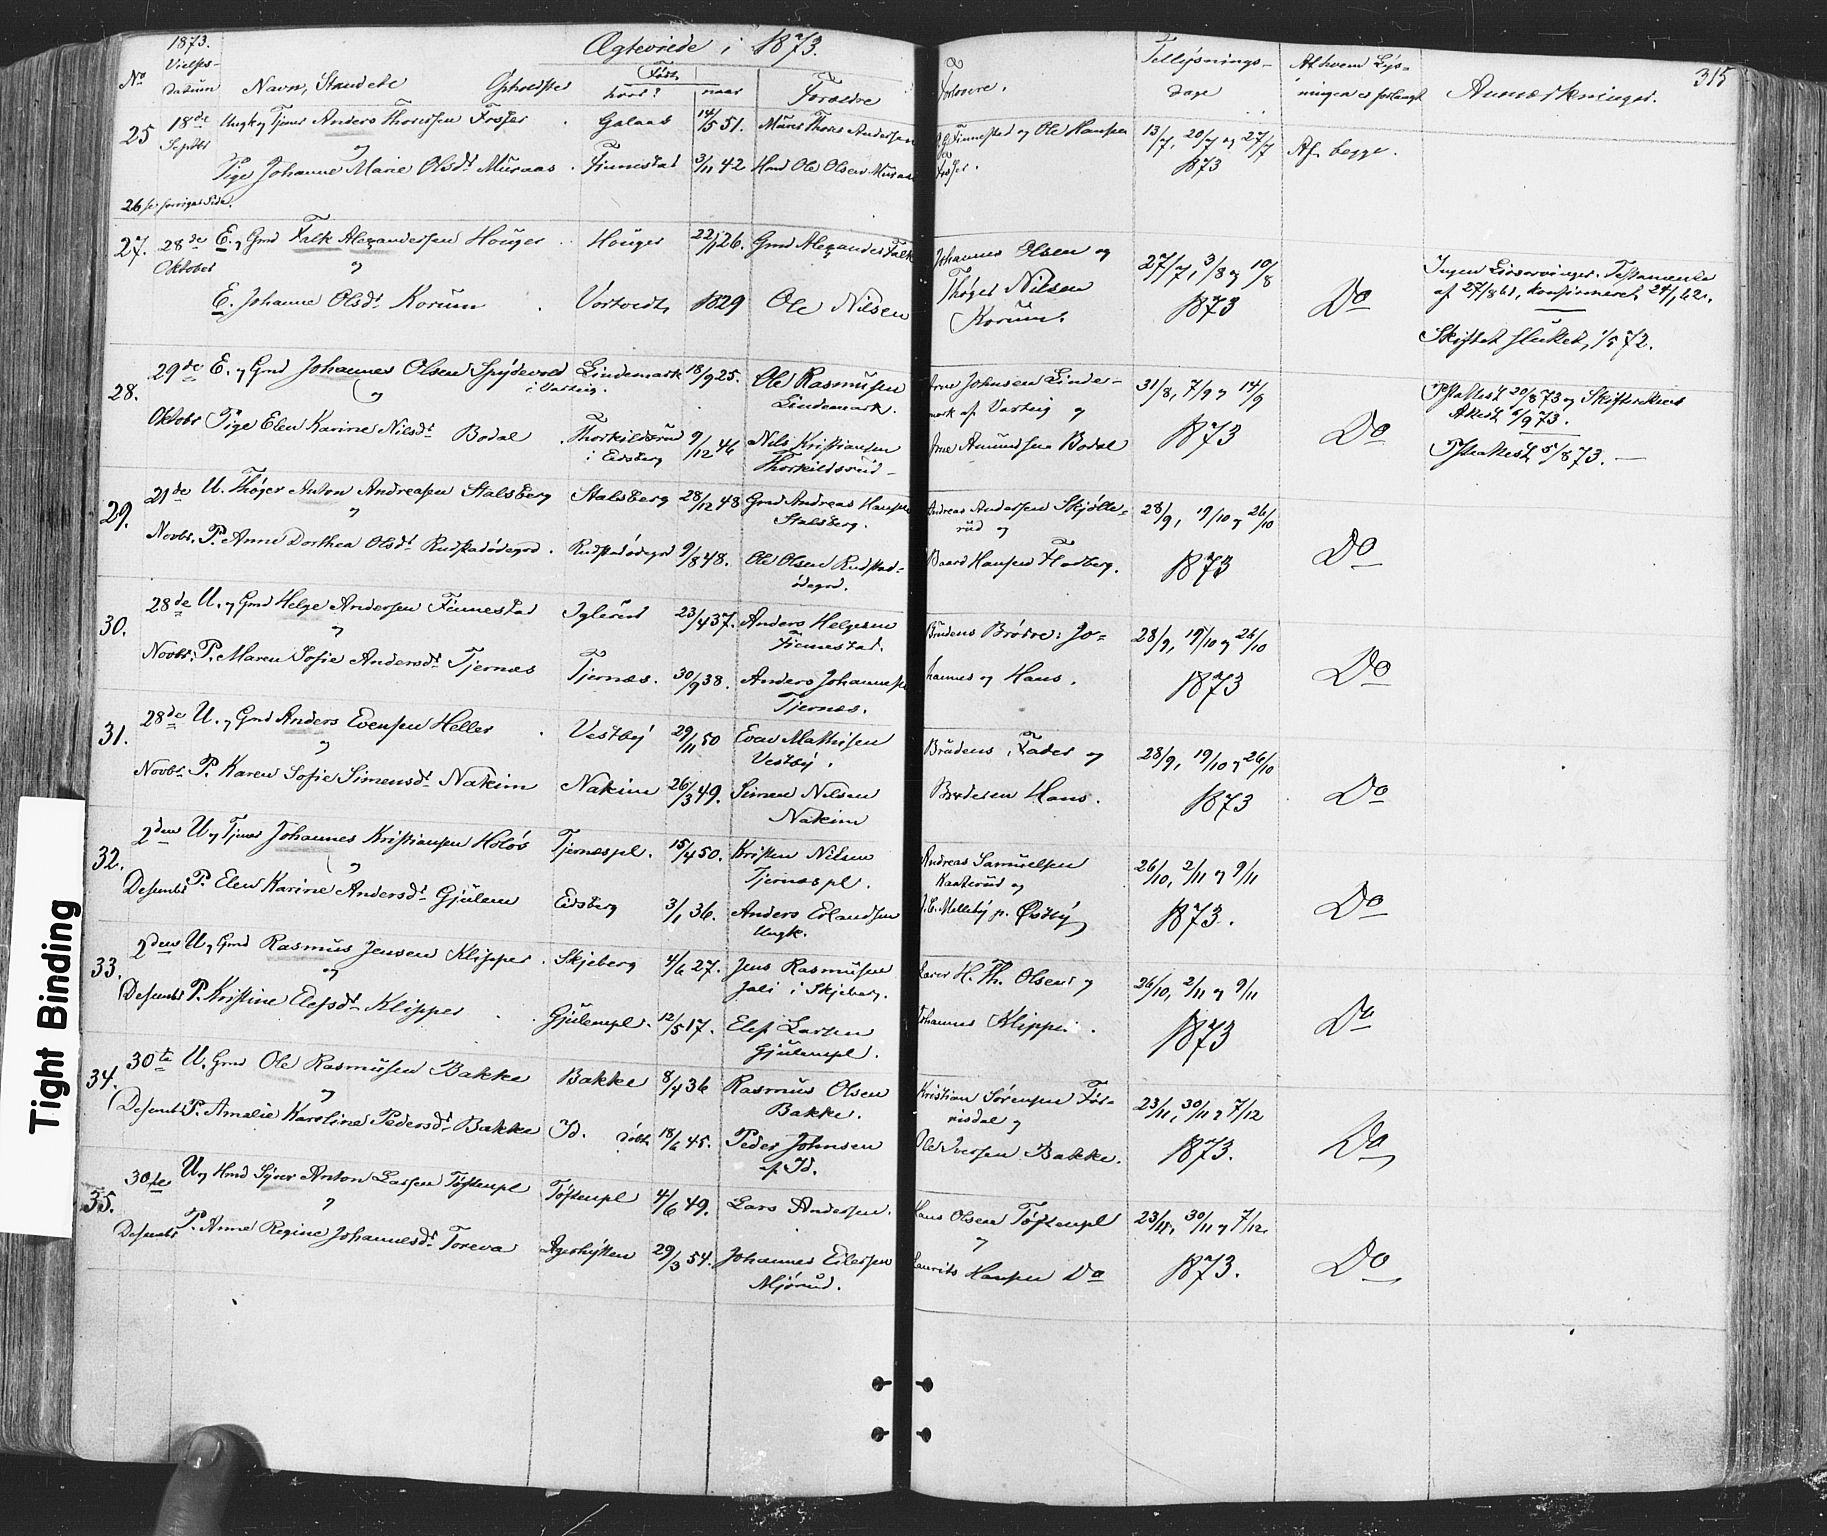 1873.
Ægteviede i 1873.
315
No
Vielses-
datum
Navn, Stand etc
Opholdsted
Født
hvor?
naar
Forældre
Forlovere.
Tillysnings-
dage
Af hvem Lys-
ningen er forlangt
Anmærkninger.
25
18de Septbr
Ungk. og Tjener Anders Thoresen Fosser
Galaas
14/5 51.
Mürer Thore Andersen
og
Pige Johanne Marie Olsdt. Muraas
Finnestad
3/11 42
Hmd Ole Olsen Muraas
Finnestad og Ole Hansen
Fosser.
13/7, 20/7 og 27/7
1873
Af begge.
26 se forrige Side.
27.
28de Oktober
E. og Gmd Falk Alexandersen Houger
Houger
22/1 26.
Gmd Alexander Falk
og
E. Johanne Olsdt. Korum
Vortvedt
1829
Ole Nilsen
Johannes Olsen og
Thøger Nilsen
Korum.
27/7, 3/8 og 10/8
1873
Do
Ingen Livsarvinger. Testamente
af 27/8 61, konfirmeret 24/1 62.
Skiftet sluttet 1/5 72.
28.
29de Oktobr
E. og Gmd Johannes Olsen Spydevold
i Varteig.
Lindemark
18/9 25.
Ole Rasmusen
Lindemark.
og
Pige Elen Karine Nilsdt. Bodal
Thorkildsrud
i Eidsberg
9/12 46
Nils Kristiansen
Thorkildsrud
Arne Johnsen Linde-
mark af Varteig og
Arne Amundsen Bodal
31/8, 7/9 og 14/9
1873
Do
Pstattest 20/8 73 og Skifterettens
Attest 6/9 73.
Pstattest 5/8 73.
29.
21de Novbr.
U. Thøger Anton Andreasen Stalsberg
Stalsberg
28/12 48
Gmd Andreas Hansen
Stalsberg.
og
P. Anne Dorthea Olsdt. Rudstadødegrd
Rudstadødegrd
9/8 48.
Ole Olsen Rudstad-
ødegrd.
Andreas Andersen Skjølle-
rüd og
Baard Hansen Floberg.
28/9, 19/10 og 26/10
1873
Do
30.
28de Novbr.
U. og Gmd Helge Andersen Finnestad
Iglerud
23/4 37.
Anders Helgesen
Finnestad.
og
P. Maren Sofie Andersdt. Tjernæs
Tjernæs.
30/9 38.
Anders Johannesen
Tjernæs.
Brudens Brødre: Jo-
hannes og Hans.
28/9, 19/10 og 26/10
1873
Do
31.
28de Novbr.
U. og Gmd Anders Evensen Heller
Vestby
29/11 50
Even Mathisen
Vestby.
og
P. Karen Sofie Simensdt. Nakim
Nakim
26/3 49.
Simen Nilsen
Nakim
Brudens Fader og
Broderen Hans.
28/9, 19/10 og 26/10
1873
Do
32.
2den Desembr
U. og Tjener Johannes Kristiansen Holøs
Tjernæspl.
15/4 50.
Kristen Nilsen
Tjernæspl.
og
P. Elen Karine Andersdt. Gjulem
Eidsberg
3/1 36.
Anders Erlandsen
Ungk.
Andreas Samuelsen
Kaaterüd og
Mellebÿ p. Østby
26/10, 2/11 og 9/11
1873.
Do
33.
2den Desembr
U. og Gmd Rasmus Jensen Klipper.
Skjeberg
4/6 27.
Jens Rasmusen
i Skjeberg.
og
P. Kristine Elefsdt. Klipper
Gjulempl.
12/5 17.
Elef Larsen
Gjulempl.
H. Th. Olsen og
Johannes Klipper.
26/10, 2/11 og 9/11
1873
Do
34.
30te Desembr
U. Gmd Ole Rasmusen Bakke
Bakke
8/4 36
Rasmus Olsen
Bakke.
og
P. Amalie Karoline Pedersdt. Bakke
Id. døbt
18/6 45.
Peder Johnsen
af Id.
Kristian Sørensen Før-
risdal og
Ole Iversen Bakke.
23/11, 30/11 og 7/12
1873.
Do
35.
30te Desembr
U. og Hmd Syver Anton Larsen Tøftenpl
Tøftenpl
4/6 49.
Lars Andersen.
og
P. Anne Regine Johannesdt. Toreva
Agerhytten
29/3 54.
Johannes Eilersen
Mjørud.
Hans Olsen Tøftenpl
og
Laurits Hansen Do
23/11, 30/11 og 7/12.
1873.
Do
Tight Binding